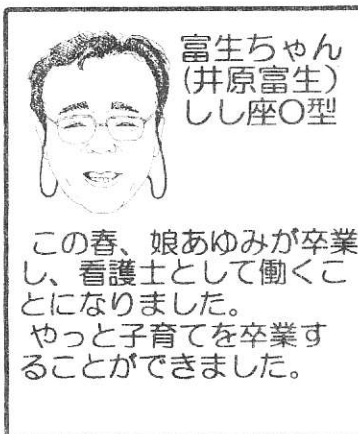 富生ちゃん
(井原富生)
しし座O型
この春、娘あゆみが卒業
し、看護士として働くこ
とになりました。
やっと子育てを卒業す
ることができました。